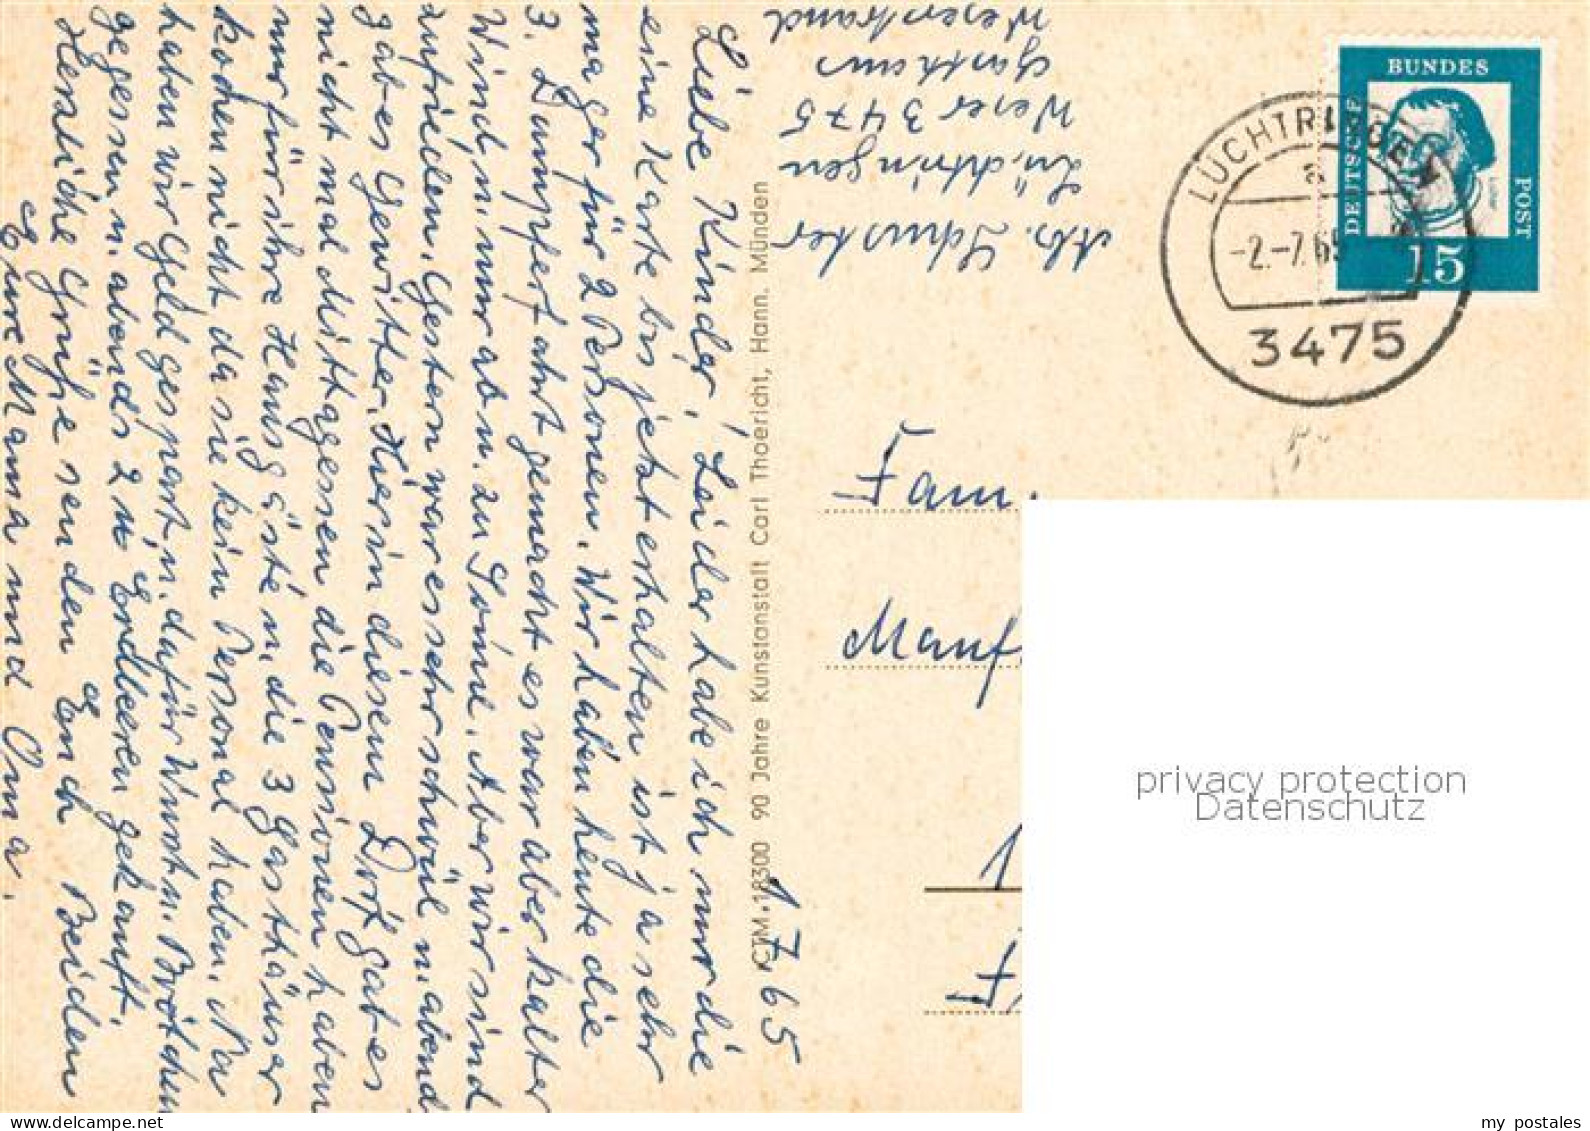 1.7.65
Liebe Kinder, Leider habe ich nur die
eine Karte bis jetzt erhalten ist ja sehr
mager für 2 Personen. Wir haben heute die
3. Dampferfahrt gemacht es war aber kalter
Wind, n. nur ab n. zu Sonne. Aber wir sind
zufrieden. Gestern war es sehr schwül n. abend
gab es Gewitter. Hier in diesem Dorf gab es
nicht mal Mittagessen die Pensionen haben
nur für ihre Hausgäste n. die 3 Gasthäuser
kochen nicht da sie kein Personal haben. Na
haben wir Geld gespart n. dafür Wurst n. Brötchen
gegessen n. abends 2 # Erdbeeren gekauft.
Herzliche Grüße senden Euch Beiden
Eure Mama und Oma.
Ab. Schuster
Lüchtringen
Weser 3475
Gasthaus
Weserstrand
ICTM.18300 90 Jahre Kunstanstalt Carl Thoericht, Hann. Münden
BUNDES
POST
DEUTSCHE
15
LÜCHTRINGEN
a
-2.-7.65
3475
Fam.
Manf
1
privacy protection
Datenschutz
my postales